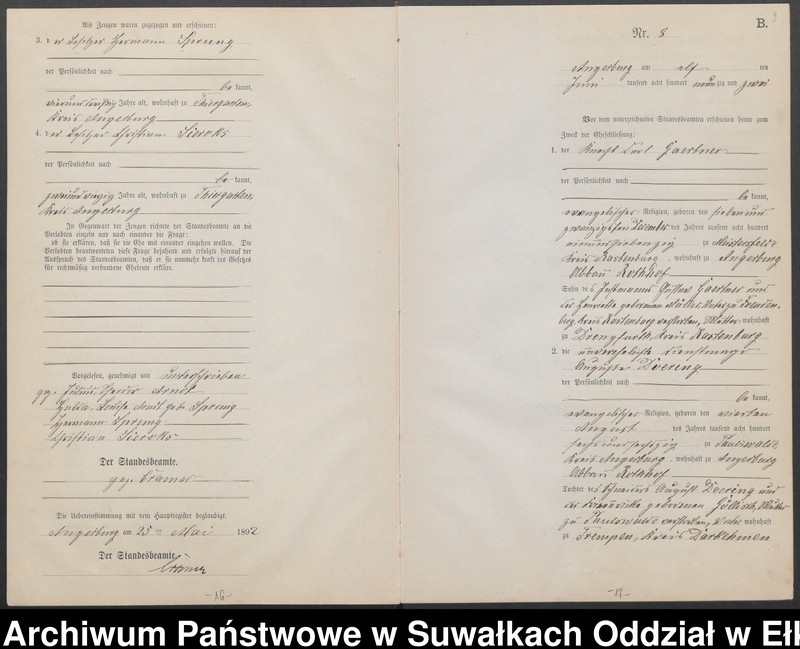 Als Zeugen waren zugezogen und erschienen:
3. der Besitzer Hermann Sprung
der Persönlichkeit nach
bekannt,
vierunddreißig Jahre alt, wohnhaft zu Thiergarten,
Kreis Angerburg
4. der Besitzer Christian Sieroks
der Persönlichkeit nach
bekannt,
zweiundvierzig Jahre alt, wohnhaft zu Thiergarten,
Kreis Angerburg
In Gegenwart der Zeugen richtete der Standesbeamte an die
Verlobten einzeln und nach einander die Frage:
ob sie erklären, daß sie die Ehe mit einander eingehen wollen. Die
Verlobten beantworteten diese Frage bejahend und erfolgte hierauf der
Ausspruch des Standesbeamten, daß er sie nunmehr kraft des Gesetzes
für rechtmäßig verbundene Eheleute erkläre.
Vorgelesen, genehmigt und unterschrieben
gez. Julius Arndt
Louise Arndt geb. Sprung
Hermann Sprung
Christian Sieroks
Der Standesbeamte.
gez. Cramer
Die Uebereinstimmung mit dem Hauptregister beglaubigt.
Angerburg am 25ten Mai 1892
Der Standesbeamte.
Cramer
-16-
B.
9
Nr. 8
Angerburg am elf ten
Juni tausend acht hundert neunzig und zwei
Vor dem unterzeichneten Standesbeamten erschienen heute zum
Zweck der Eheschließung:
1. der Knecht Carl Gaertner
der Persönlichkeit nach
bekannt,
evangelischer Religion, geboren den sieben und
zwanzigsten Dezember des Jahres tausend acht hundert
neunundsiebenzig zu Meistersfelde
Kreis Rastenburg, wohnhaft zu Angerburg
Abbau Rothhof
Sohn des Instmanns Gustav Gaertner und
der Henriette geborenen Müller, Vater zu
Kreis Rastenburg verstorben, Mutter wohnhaft
zu Drengfurth, Kreis Rastenburg
2. die unverehelichte Dienstmagd
Auguste Doering
der Persönlichkeit nach
bekannt,
evangelischer Religion, geboren den vierten
August des Jahres tausend acht hundert
sechsundsechzig zu Paulswalde,
Kreis Angerburg, wohnhaft zu Angerburg
Abbau Rothhof
Tochter des August Doering und
der geborenen Mutter
zu Paulswalde verstorben, Vater wohnhaft
zu Trempen, Kreis Darkehmen
-17-
Archiwum Państwowe w Suwałkach Oddział w Ełk